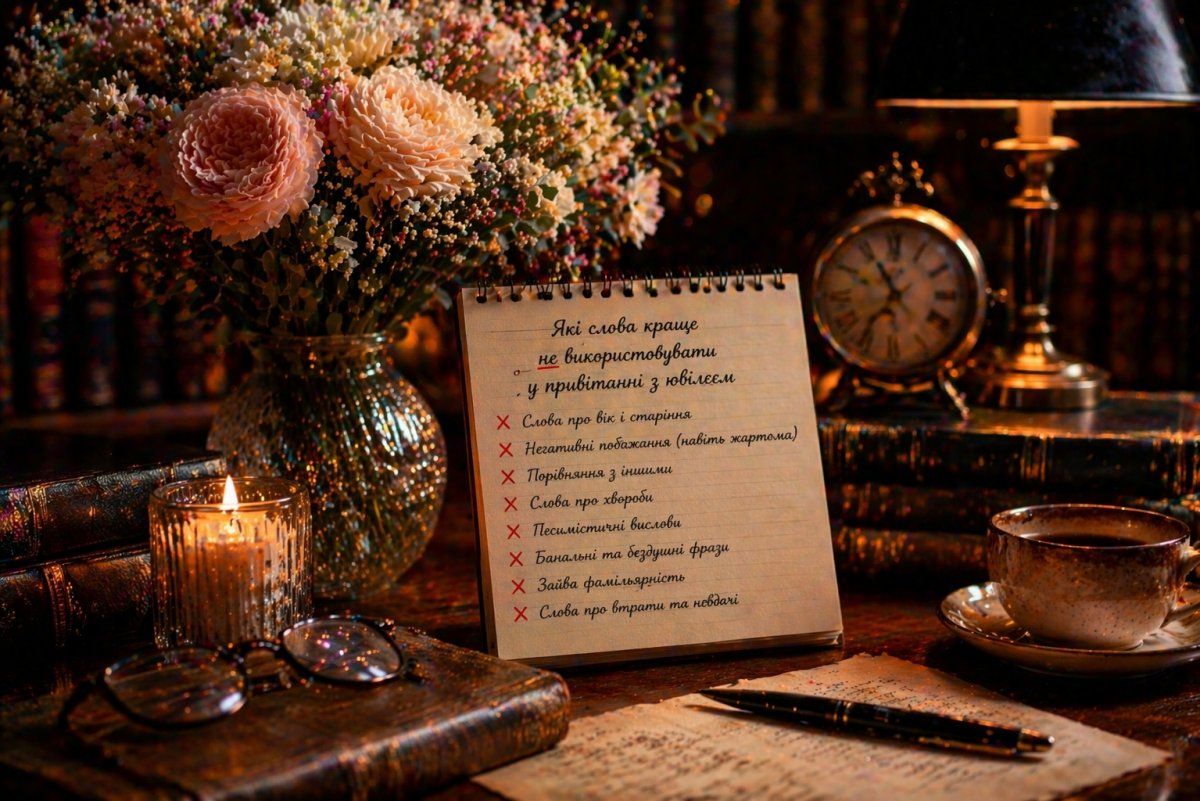 Які слова краще
не використовувати
у привітанні з ювілеєм
Слова про вік і старіння
Негативні побажання (навіть жартома)
Порівняння з іншими
Слова про хвороби
Песимістичні вислови
Банальні та бездушні фрази
Зайва фамільярність
Слова про втрати та невдачі